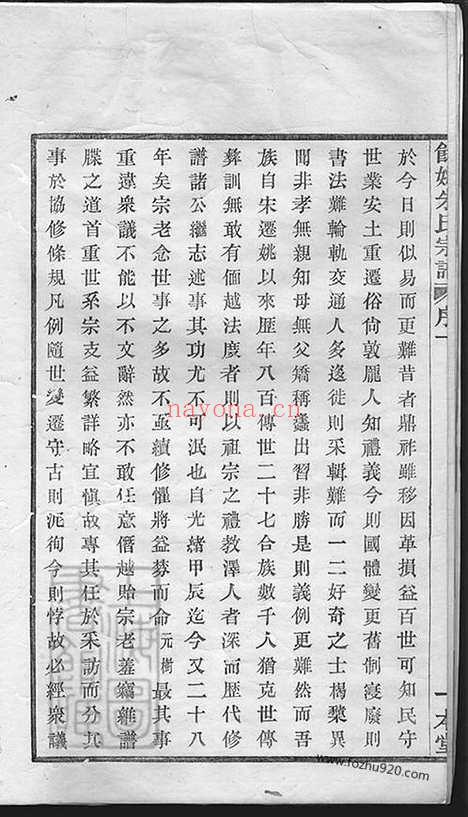 餘姚朱氏宗譜 序 一
於今日則似易而更難昔者鼎祚雖移因革損益百世可知民守
世業安土重遷俗尙敦龐人知禮義今則國體變更舊制寖廢則
書法難輪軌交通人多遷徙則采輯難而一二好奇之士楬櫫異
聞非孝無親知母無父矯稱蠭出習非勝是則義例更難然而吾
族自宋遷姚以來歷年八百傳世二十七合族數千人猶克世傳
彝訓無敢有偭越法度者則以祖宗之禮教澤人者深而歷代修
譜諸公繼志述事其功尤不可泯也自光緖甲辰迄今又二十八
年矣宗老念世事之多故不亟續修懼將益棼而命元樹最其事
重違衆議不能以不文辭然亦不敢任意僭越貽宗老羞竊維譜
牒之道首重世系宗支益繁詳略宜愼故專其任於采訪而分其
事於協修條規凡例隨世變遷守古則泥徇今則悖故必經衆議
一本堂
navona.cn
www.fozhu920.com